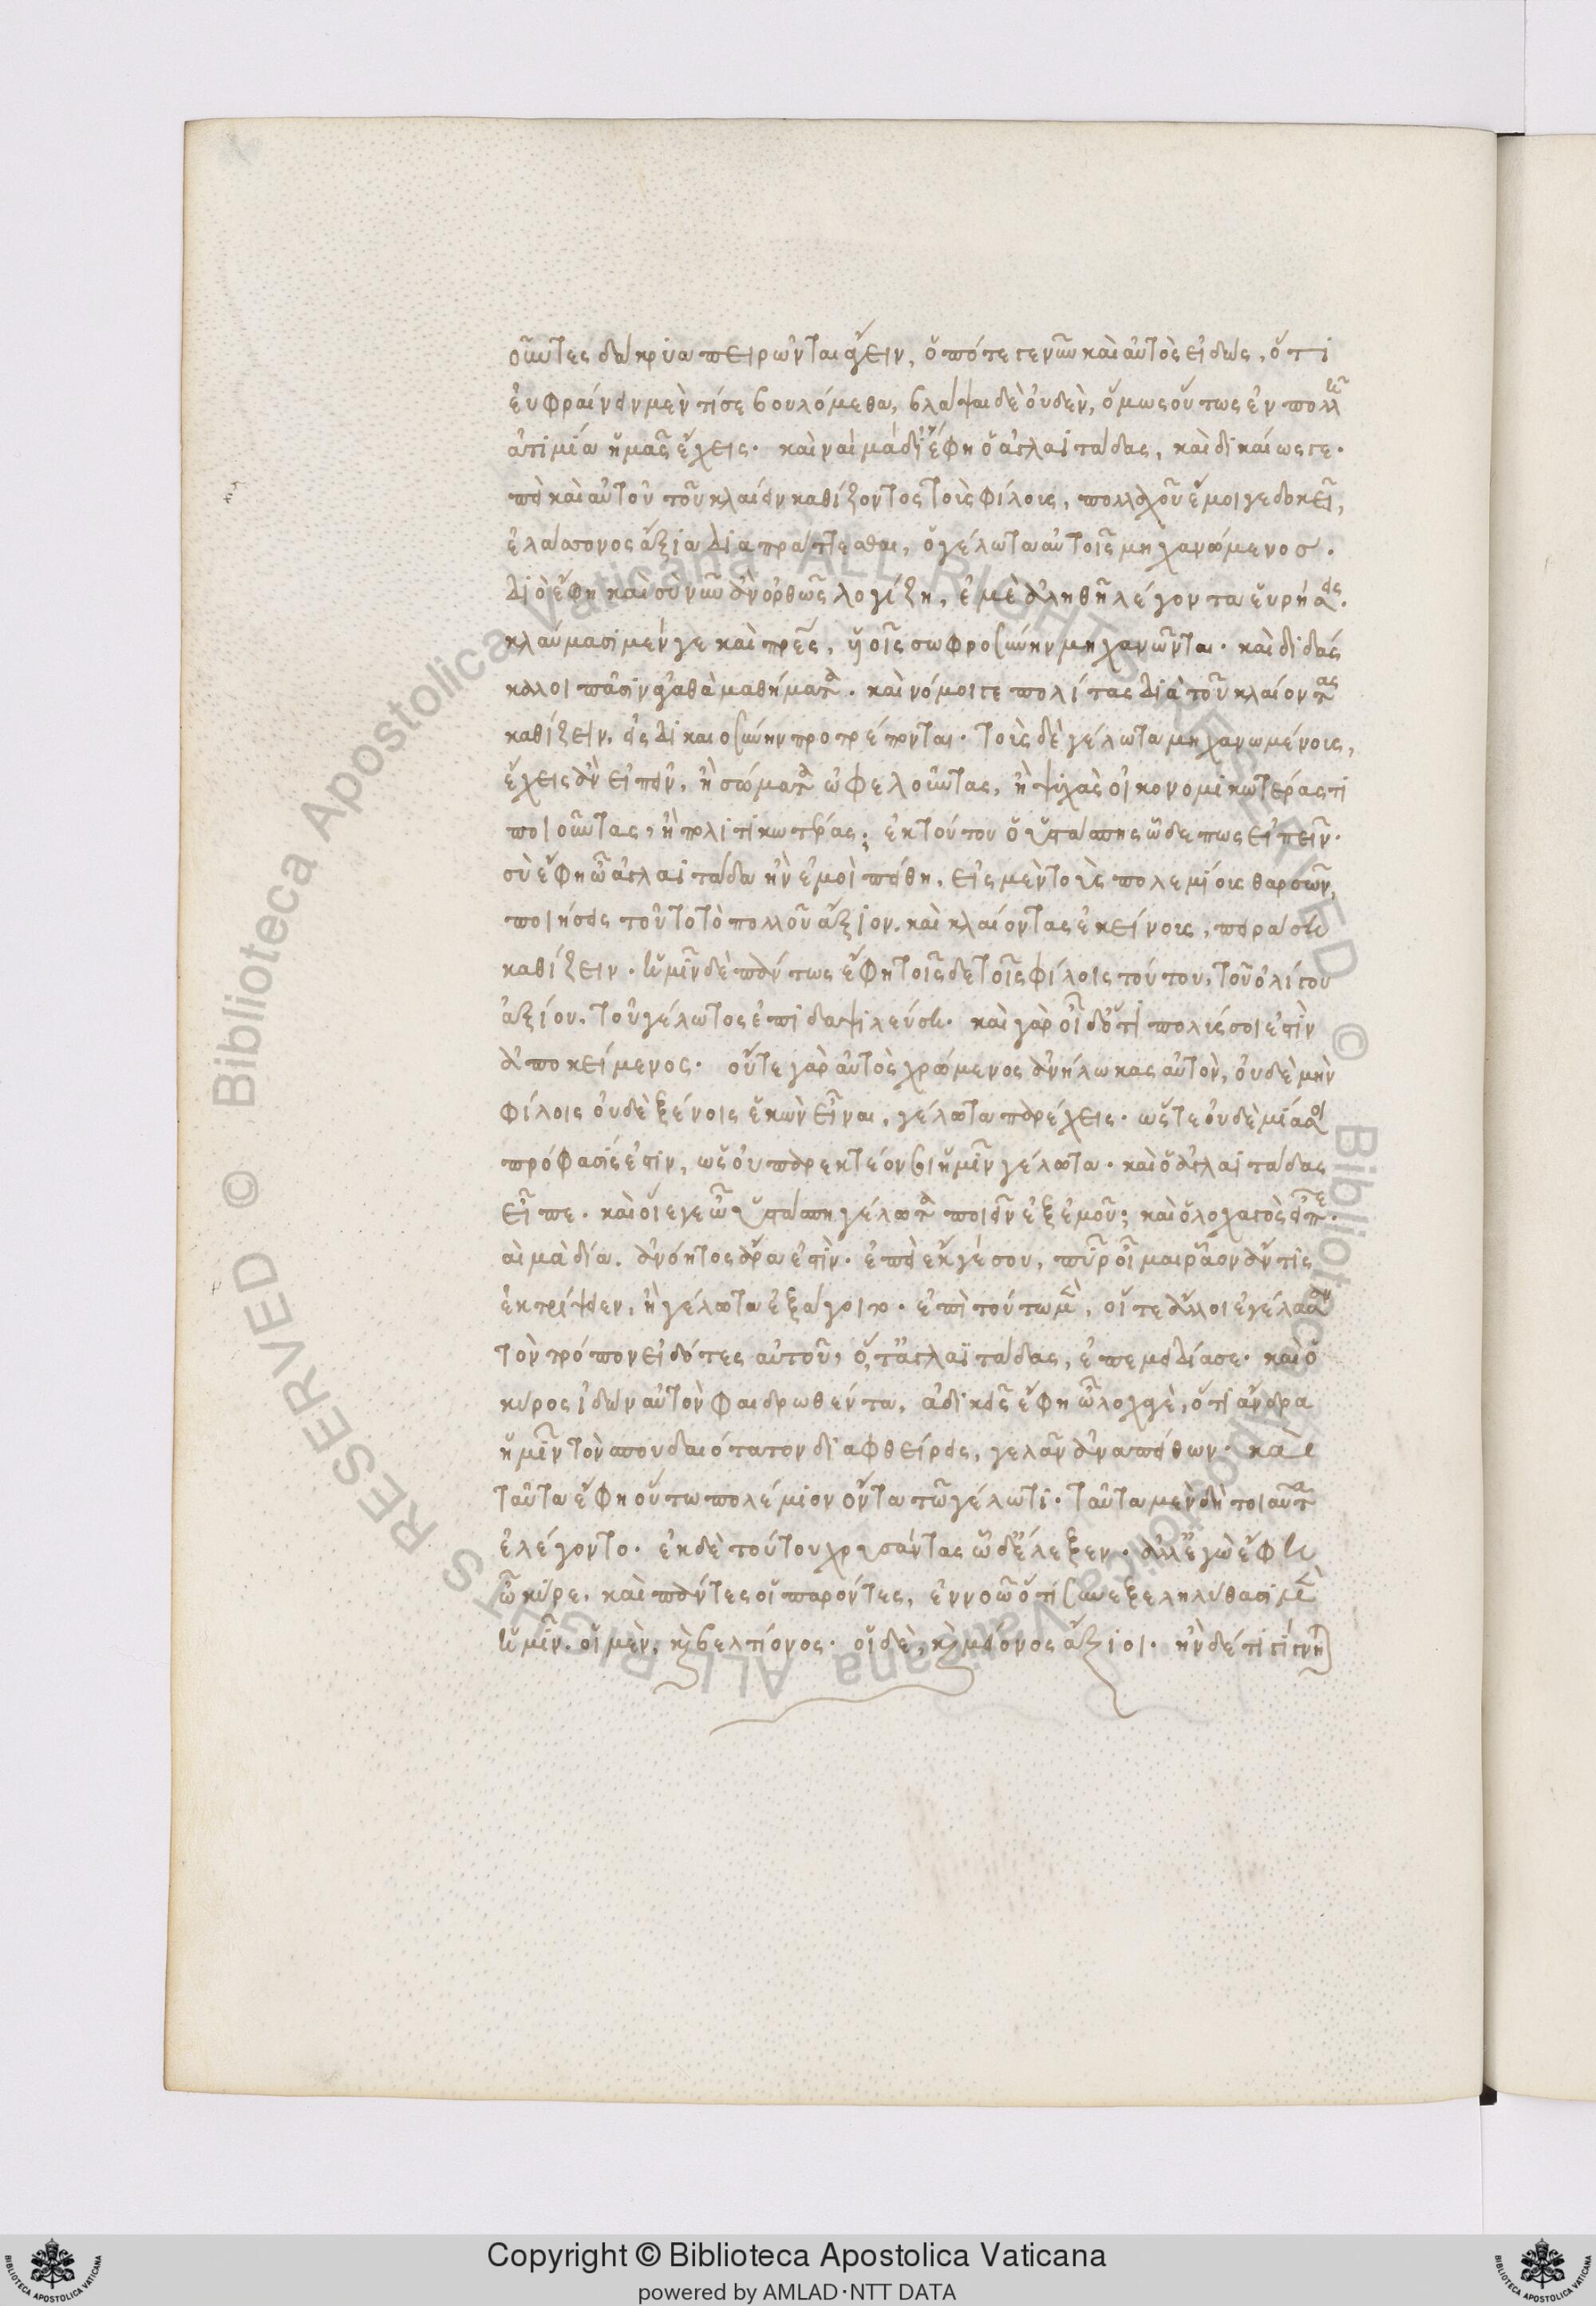 οῦντες δάκρυα πειρῶνται ἄγειν, ὁπότε γε νῦν καὶ αὐτὸς εἰδὼς, ὅτι
εὐφραίνειν μέν τί σε βουλόμεθα, βλάψαι δὲ οὐδὲν, ὅμως οὕτως ἐν πολλῇ
ἀτιμίᾳ ἡμᾶς ἔχεις. καὶ ναὶ μὰ δί ἔφη ὁ ἀγλαϊτάδας, καὶ δικαίως γε.
ἐπεὶ καὶ αὐτοῦ τοῦ κλαίειν καθίζοντος τοὺς φίλους, πολλαχοῦ ἔμοιγε δοκεῖ,
ἐλάσσονος ἄξια διαπράττεσθαι, ὁ γέλωτα αὐτοῖς μηχανώμενος.
διὸ ἔφη καὶ σὺ νῦν ἂν ὀρθῶς λογίζῃ, ἐμὲ ἀληθῆ λέγοντα εὑρήσεις.
κλαύμασι μέν γε καὶ πατέρες, υἱοῖς σωφροσύνην μηχανῶνται. καὶ διδάσ
καλοι παισὶν ἀγαθὰ μαθήματα. καὶ νόμοι γε πολίτας διὰ τοῦ κλαίοντας
καθίζειν, εἰς δικαιοσύνην προτρέπονται. τοὺς δὲ γέλωτα μηχανωμένους,
ἔχεις ἂν εἰπεῖν, ἢ σώματα ὠφελοῦντας, ἢ ψυχὰς οἰκονομικωτέρας τι
ποιοῦντας, ἢ πολιτικωτέρας; ἐκ τούτου ὁ ὑστάσπης ὧδέ πως εἶπεν.
σὺ ἔφη ὦ ἀγλαϊτάδα ἢν ἐμοὶ πείθῃ, εἰς μὲν τοὺς πολεμίους θαρσῶν,
ποιήσεις τοῦτο τὸ πολλοῦ ἄξιον. καὶ κλαίοντας ἐκείνους, πειράσῃ
καθίζειν. ἡμῖν δὲ πάντως ἔφη τοῖσδε τοῖς φίλοις τούτου, τοῦ ὀλίγου
ἀξίου, τοῦ γέλωτος ἐπιδαψιλεύσῃ. καὶ γὰρ οἶδ᾽ ὅτι πολύς σοι ἐστὶν
ἀποκείμενος. οὔτε γὰρ αὐτὸς χρώμενος ἀνήλωκας αὐτὸν, οὐδὲ μὴν
φίλοις οὐδὲ ξένοις ἑκὼν εἶναι, γέλωτα παρέχεις. ὥστε οὐδεμία σοι
πρόφασίς ἐστιν, ὡς οὐ παρεκτέον σοι ἡμῖν γέλωτα. καὶ ὁ ἀγλαϊτάδας
εἶπε. καὶ οἴει γε ὦ ὑστάσπη γέλωτα ποιεῖν ἐξ ἐμοῦ; καὶ ὁ λοχαγὸς εἶπε.
ναὶ μὰ δία. ἀνόητος ἄρα ἐστὶν. ἐπεὶ ἔκ γε σου, πῦρ οἶμαι ῥᾷον ἄν τις
ἐκτρίψειεν, ἢ γέλωτα ἐξάγοιτο. ἐπὶ τούτῳ μὲν, οἵ τε ἄλλοι ἐγέλασαν
τὸν τρόπον εἰδότες αὐτοῦ, ὅ, τ᾽ ἀγλαϊτάδας, ἐπεμειδίασε. καὶ ὁ
κύρος ἰδὼν αὐτὸν φαιδρωθέντα, ἀδικεῖς ἔφη ὦ λοχαγὲ, ὅτι ἄνδρα
ἡμῖν τὸν σπουδαιότατον διαφθείρεις, γελᾶν ἀναπείθων. καὶ
ταῦτα ἔφη οὕτω πολέμιον ὄντα τῷ γέλωτι. ταῦτα μὲν δὴ τοιαῦτα
ἐλέγοντο. ἐκ δὲ τούτου χρυσάντας ὧδ᾽ ἔλεξεν. ἀλλ᾽ ἐγὼ ἔφη
ὦ κύρε, καὶ πάντες οἱ παρόντες, ἐννοῶ ὅτι συνεξεληλύθασι μὲν
ἡμῖν. οἱ μὲν, καὶ βελτίονος. οἱ δὲ, καὶ μείονος ἄξιοι. ἢν δέ τι γίγνη